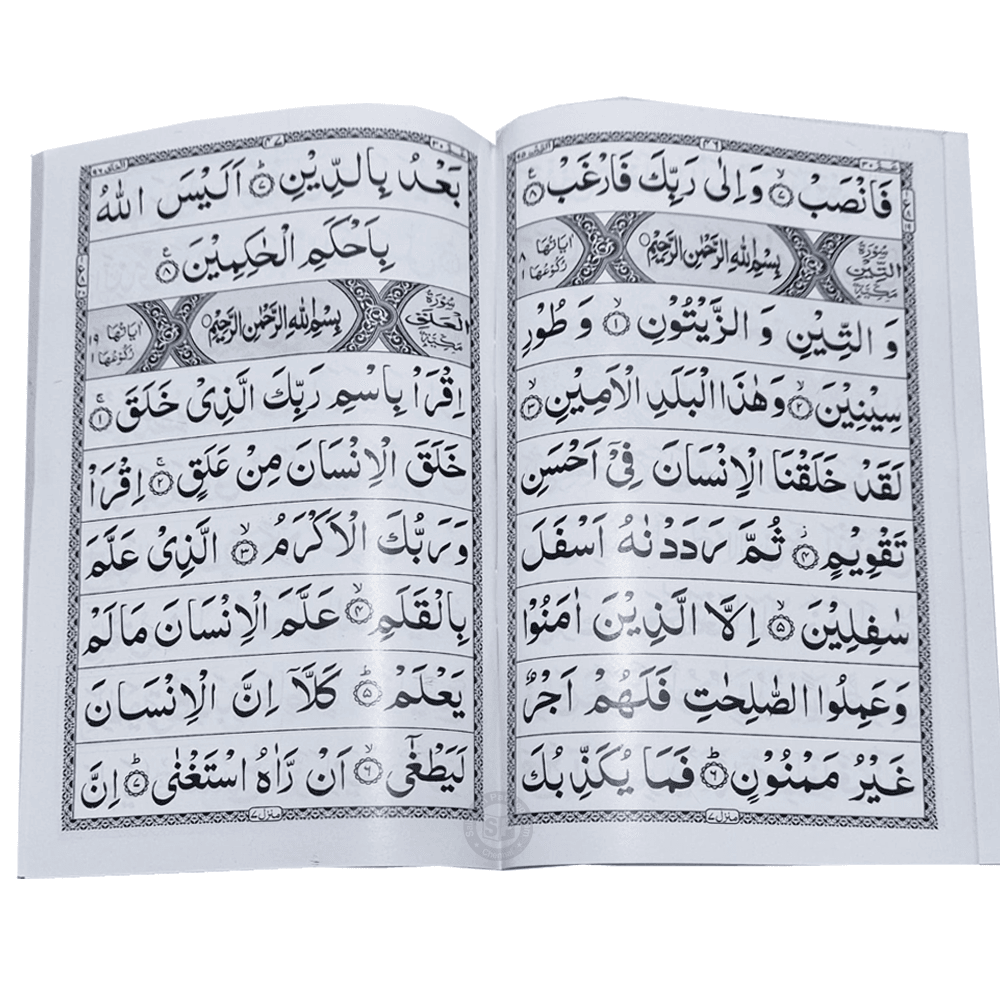 فَانْصَبْ ۙ﴿۷﴾ وَ اِلٰی رَبِّكَ فَارْغَبْ ﴿۸﴾
سُوْرَةُ التِّيْنِ مَكِّيَّةٌ
بِسْمِ اللهِ الرَّحْمٰنِ الرَّحِيْمِ
اٰيَاتُهَا ۸
رُكُوْعُهَا ۱
وَ التِّيْنِ وَ الزَّيْتُوْنِ ۙ﴿۱﴾ وَ طُوْرِ
سِيْنِيْنَ ۙ﴿۲﴾ وَهٰذَا الْبَلَدِ الْاَمِيْنِ ۙ﴿۳﴾
لَقَدْ خَلَقْنَا الْاِنْسَانَ فِیْۤ اَحْسَنِ
تَقْوِيْمٍ ﴿۴﴾ ثُمَّ رَدَدْنٰهُ اَسْفَلَ
سٰفِلِيْنَ ۙ﴿۵﴾ اِلَّا الَّذِيْنَ اٰمَنُوْا
وَعَمِلُوا الصّٰلِحٰتِ فَلَهُمْ اَجْرٌ
غَيْرُ مَمْنُوْنٍ ؕ﴿۶﴾ فَمَا يُكَذِّبُكَ
منزل ۷
بَعْدُ بِالدِّيْنِ ؕ﴿۷﴾ اَلَيْسَ اللهُ
بِاَحْكَمِ الْحٰكِمِيْنَ ﴿۸﴾
سُوْرَةُ الْعَلَقِ مَكِّيَّةٌ
بِسْمِ اللهِ الرَّحْمٰنِ الرَّحِيْمِ
اٰيَاتُهَا ۱۹
رُكُوْعُهَا ۱
اِقْرَاْ بِاسْمِ رَبِّكَ الَّذِیْ خَلَقَ ۚ﴿۱﴾
خَلَقَ الْاِنْسَانَ مِنْ عَلَقٍ ۚ﴿۲﴾ اِقْرَاْ
وَرَبُّكَ الْاَكْرَمُ ۙ﴿۳﴾ الَّذِیْ عَلَّمَ
بِالْقَلَمِ ۙ﴿۴﴾ عَلَّمَ الْاِنْسَانَ مَا لَمْ
يَعْلَمْ ؕ﴿۵﴾ كَلَّاۤ اِنَّ الْاِنْسَانَ
لَيَطْغٰۤی ۙ﴿۶﴾ اَنْ رَّاٰهُ اسْتَغْنٰی ؕ﴿۷﴾ اِنَّ
منزل ۷